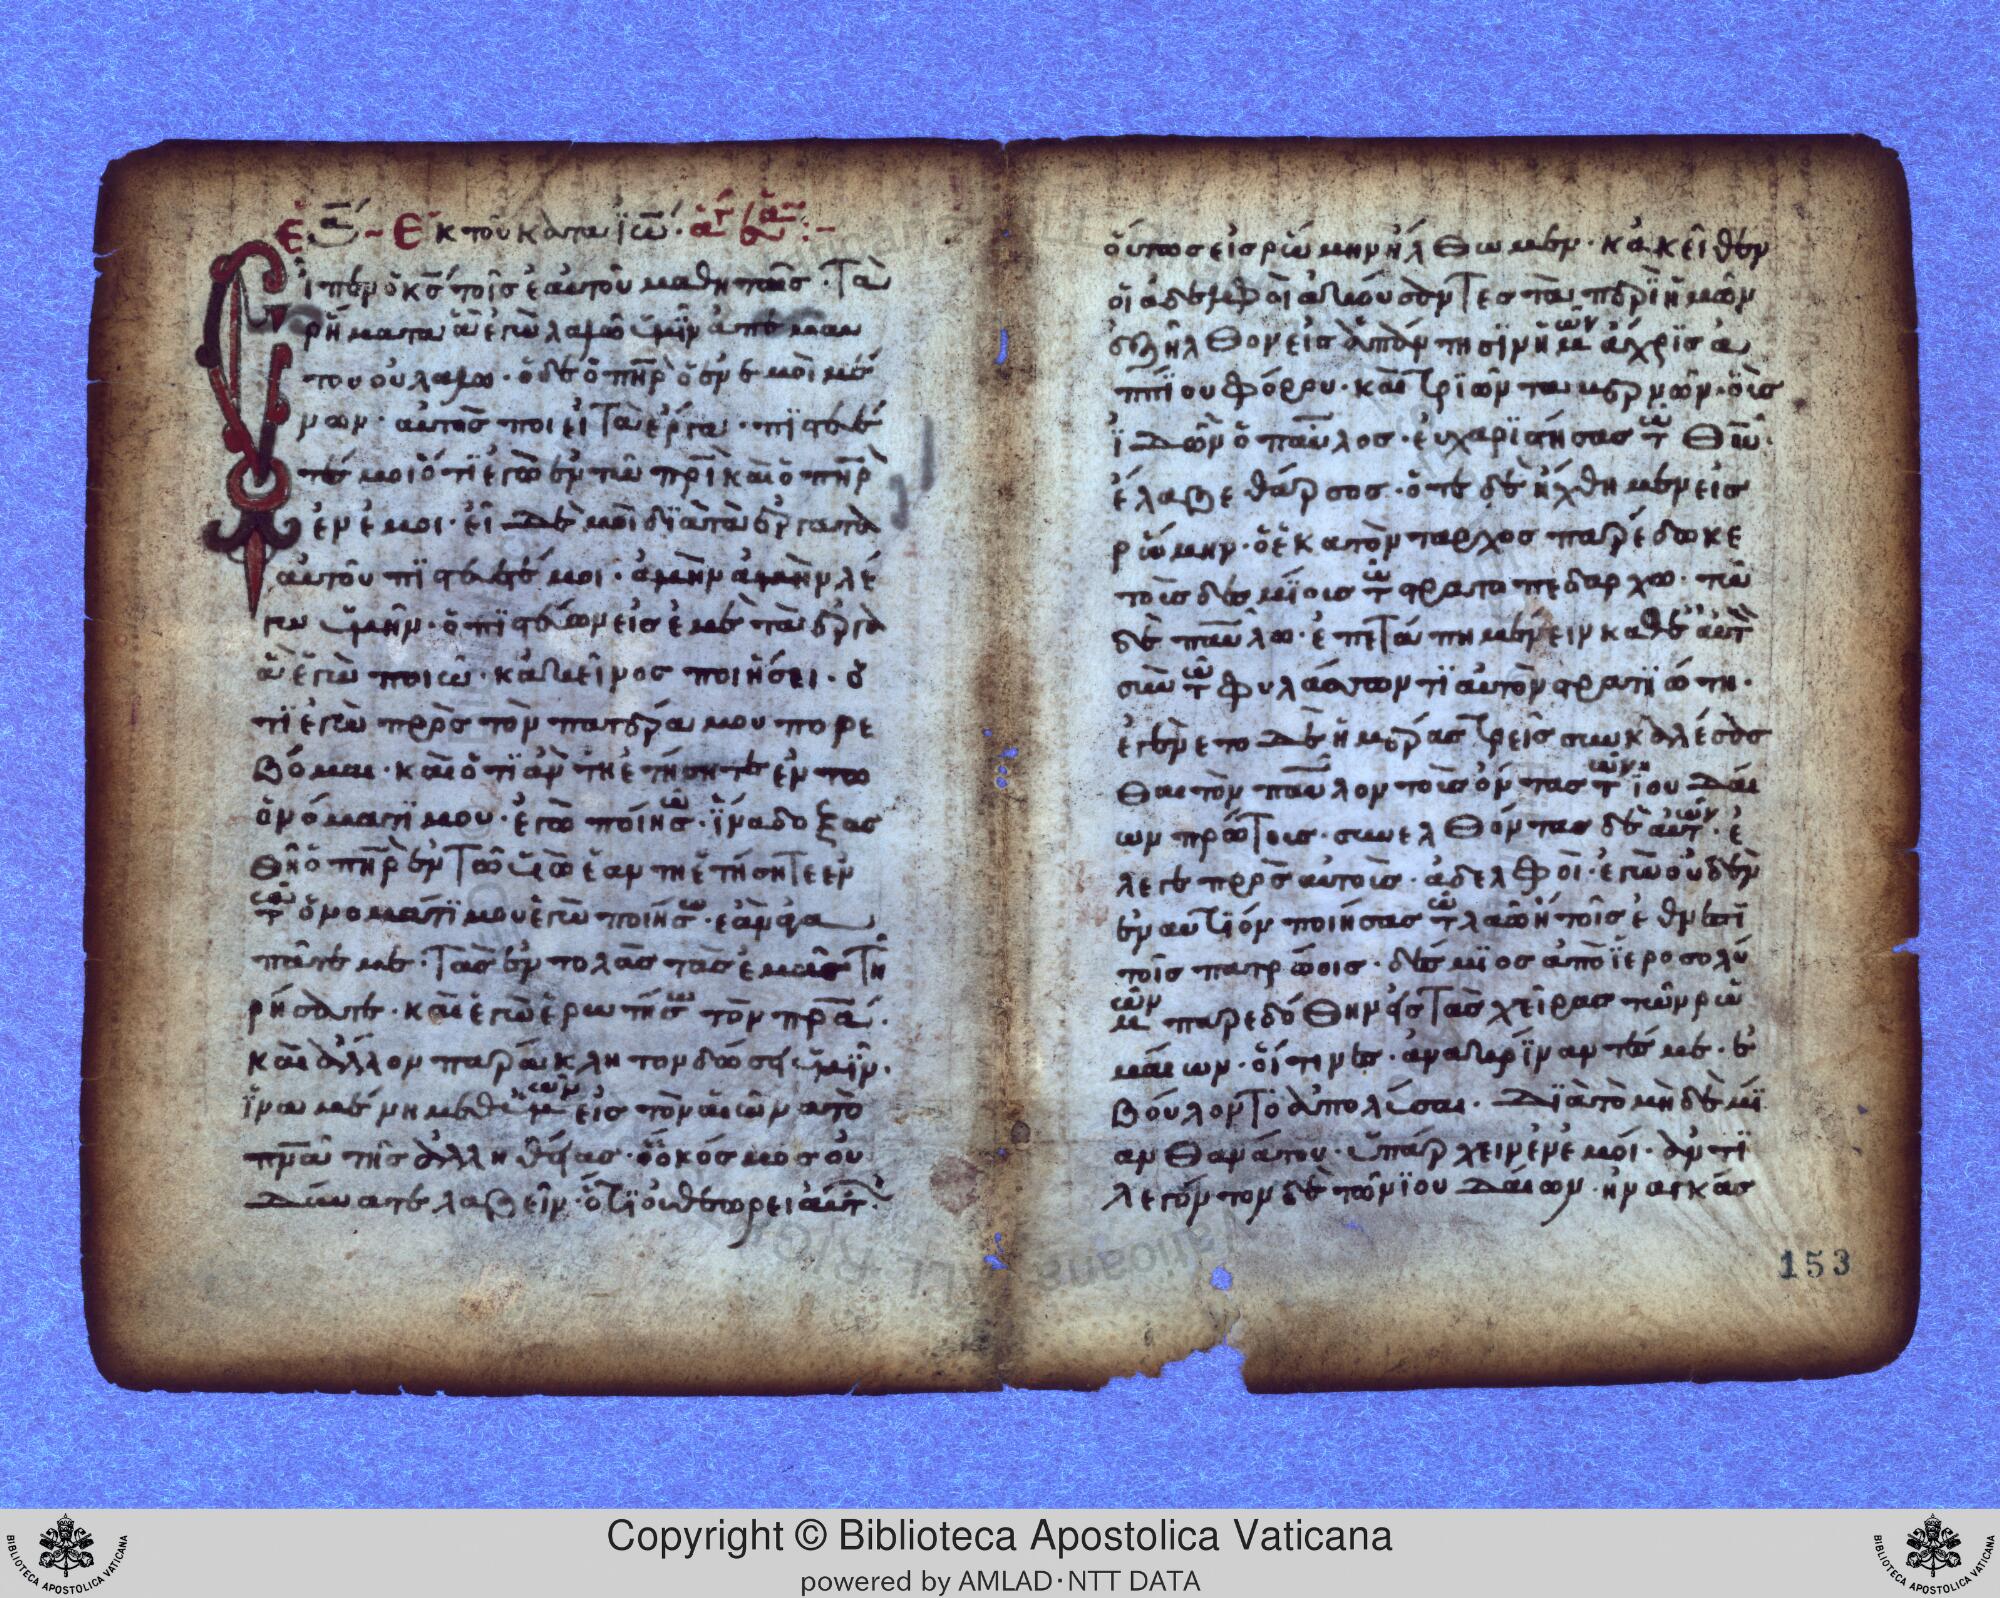 Ἐκ τοῦ κατὰ Ἰω
ἶπεν ὁ κς τοῖς ἑαυτοῦ μαθηταῖς· Τὰ
ρήματα ἃ ἐγὼ λαλῶ ὑμῖν ἀπ ἐμαυ
του οὐ λαλω· ὁ δὲ ὁ πηρ ὁ ἐν ἐμοὶ μέ
νων· αὐτὸς ποιεῖ τὰ ἔργα· πιστεύε
τέ μοι ὅτι ἐγὼ ἐν τῶ πρὶ καὶ ὁ πηρ
ἐν ἐμοι· εἰ δὲ μὸι διὰ τὰ ἔργα τὰ
αὐτοῦ πιστεύετέ μοι· ἀμὴν ἀμὴν λέ
γω ὑμῖν· ὁ πιστεύων εἰς ἐμὲ τὰ ἔργα
ἃ ἐγὼ ποιῶ· κακεῖνος ποιήσει· ὅ
τι ἐγὼ πρὸς τὸν πατέρα μου πορε
βόμαι· καὶ ὅτι ἂν τη ἐτήσητε ἐν τω
ὀνόματί μου· ἐγὼ ποίησω· ἵνα δοξας
θῆ ὁ πηρ ἐν τῶ ὑῶ ἐάν τη ἐτήσητε ἐν
τῶ ὀνοματί μου ἐγὼ ποίησω· ἐὰν αγα
πᾶτε με· τὰς ἐντολὰς τὰς ἐμὰς τη
ρήσατε· καὶ ἐγὼ ἐρωτήσω τὸν πρα·
καὶ ἄλλον παράκλητον δώσει ὑμῖν·
ἵνα μένη μεθ ὑμῶν εἰς τὸν αἰῶνα τὸ
πνα τῆς ἀληθείας· ὃ ὁ κόσμος οὐ
δύναται λαβεῖν· ὅτι οὐ θεωρει αὐτ
οὕτως εἰς ρώμην ἤλθωμεν· κἀκεῖθεν
οἱ ἀδελφοὶ ἀκούσαντες τὰ περὶ ἡμῶν
ἐξῆλθον εἰς ἀπάντησιν ἡμῶν ἄχρις ἀ
ππίου φόρου· καὶ τριῶν ταμερνῶν· οἷς
ἰδὼν ὁ παῦλος· εὐχαριστήσας τῶ θῶ·
ἔλαβε θάρσος· ὅτε δὲ ἤχθημεν εἰς
ρώμην· ὁ ἑκατόνταρχος παρέδωκε
τοὶς δεσμίοις τῶ στρατοπεδαρχω· τῶ
δὲ παύλω· ἐπετάπη μένειν καθ αὑτ
σὺν τῶ φυλάσσωντι αὐτὸν στρατιώτη·
ἐγένετο δὲ ἡμέρας τρεῖς συνκαλέσας
θαι τὸν παῦλον τοὺς ὄντας τῶν ἰουδαί
ων πρώτοις· συνελθόντας δὲ αὐτῶν· ἔ
λεγε πρὸς αὐτοὶς· ἀδελφοὶ· ἐγὼ οὐδὲν
ἐναντίον ποιήσας τῶ λαῶ ἢ τοῖς ἔθνεσι
τοῖς πατρώοις· δέσμιος ἀπὸ ἱεροσολύ
μων παρεδόθην εἰς τὰς χεῖρας τῶν ρω
μαίων· οἵτινες· ἀνακρίναντές με· ἐ
βούλοντο ἀπολύσαι· διὰ τὸ μηδὲ μί
αν θανάτου· ὑπάρχειν ἐν ἐμοί· ἀντι
λεγόντον δὲ τῶν ἰουδαίων· ἠναγκάσ
153
Copyright © Biblioteca Apostolica Vaticana
powered by AMLAD·NTT DATA
BIBLIOTECA APOSTOLICA VATICANA
BIBLIOTECA APOSTOLICA VATICANA